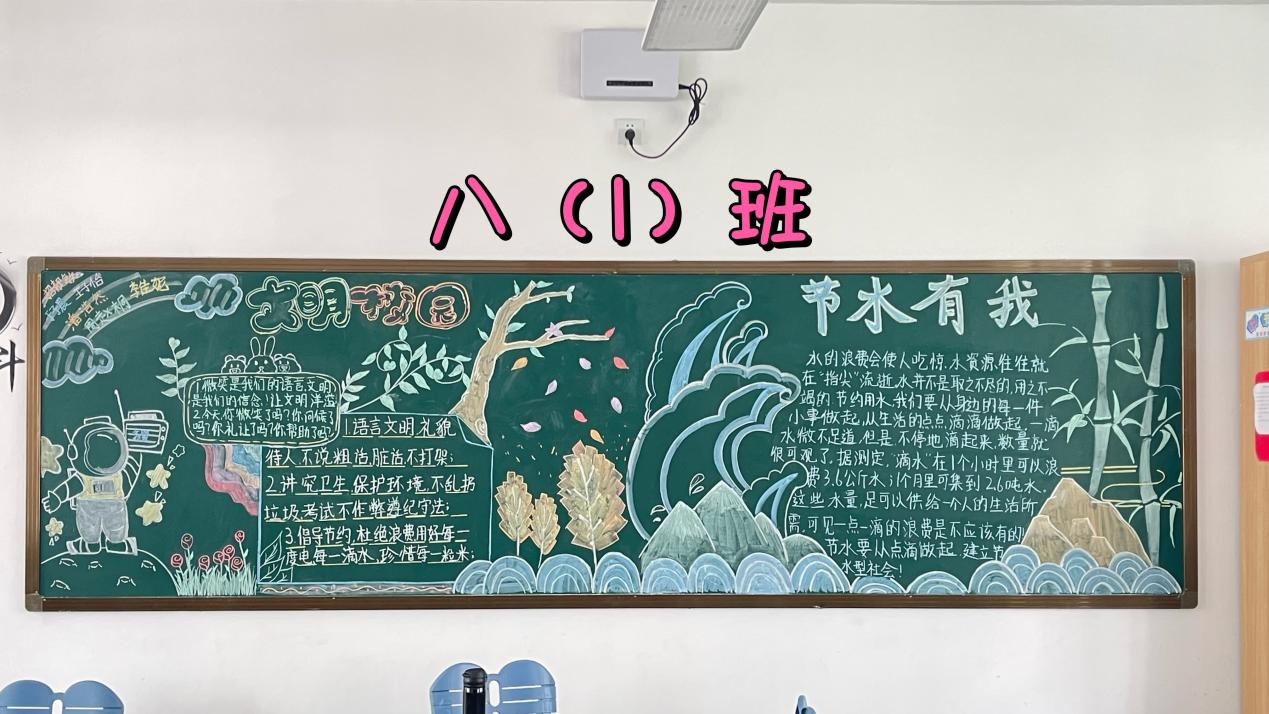 八（1）班
李妮
文明校园
1.微笑是我们的语言文明
是我们的信念!让文明洋溢
2.今天你微笑了吗?你问候了
吗?你礼让了吗?你帮助了吗?
1.语言文明,礼貌
待人不说粗话,脏话,不打架;
2.讲究卫生,保护环境,不乱扔
垃圾考试不作弊遵纪守法;
3.倡导节约,杜绝浪费用好每一
度电每一滴水,珍惜每一粒米;
节水有我
水的浪费会使人吃惊.水资源往往就
在“指尖”流逝,水并不是取之不尽的,用之不
竭的.节约用水,我们要从身边的每一件
小事做起,从生活的点点滴滴做起.一滴
水微不足道,但是不停地滴起来,数量就
很可观了.据测定,“滴水”在1个小时里可以浪
费3.6公斤水;1个月里可集到2.6吨水.
这些水量,足可以供给一个人的生活所
需.可见一点一滴的浪费是不应该有的
节水要从点滴做起,建立节
水型社会!